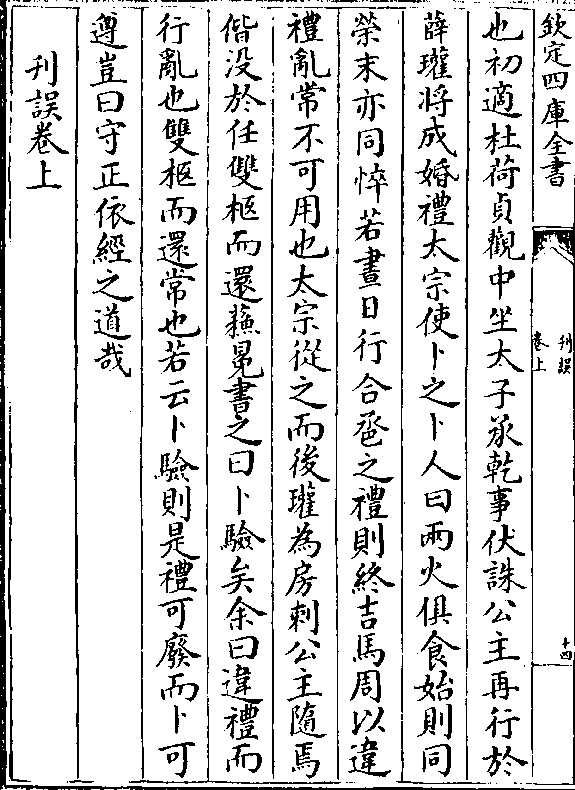 欽定四庫全書
刊誤
卷上
十四
也初適杜荷貞觀中坐太子承乾事伏誅公主再行於
薛瓘將成婚禮太宗使卜之卜人曰兩火俱食始則同
榮末亦同悴若晝日行合巹之禮則終吉馬周以違
禮亂常不可用也太宗從之而後瓘為房刺公主隨焉
偕没於任雙柩而還蘇冕書之曰卜驗矣余曰違禮而
行亂也雙柩而還常也若云卜驗則是禮可廢而卜可
遵豈曰守正依經之道哉
刊誤卷上